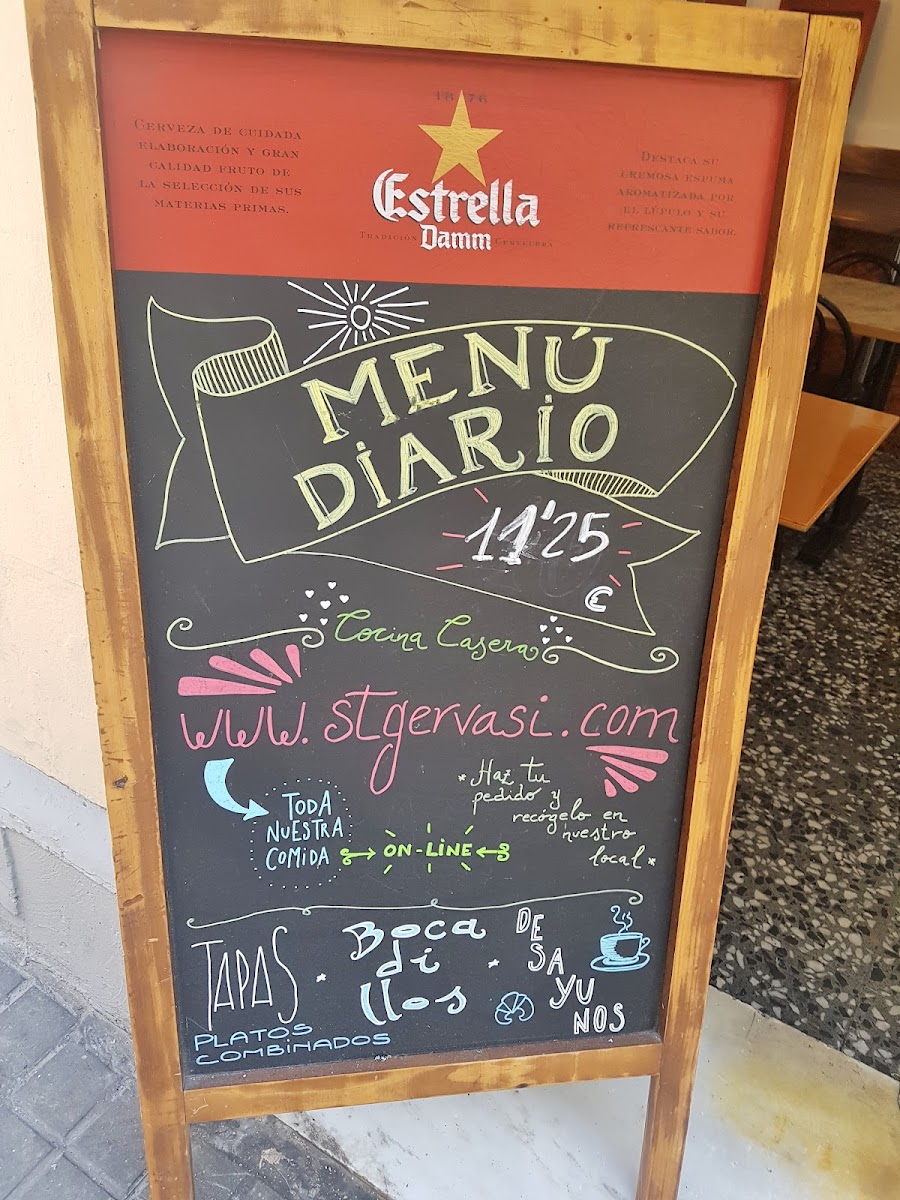 1876
CERVEZA DE CUIDADA
ELABORACIÓN Y GRAN
CALIDAD FRUTO DE
LA SELECCIÓN DE SUS
MATERIAS PRIMAS.
Estrella
Damm
TRADICIÓN CERVECERA
DESTACA SU
CREMOSA ESPUMA
AROMATIZADA POR
EL LÚPULO Y SU
REFRESCANTE SABOR.
MENÚ
DIARIO
11'25
€
Cocina Casera
www.stgervasi.com
TODA
NUESTRA
COMIDA
ON-LINE
*Haz tu
pedido y
recógelo en
nuestro
local*
TAPAS
Boca
di
llos
DE
SA
YU
NOS
PLATOS
COMBINADOS